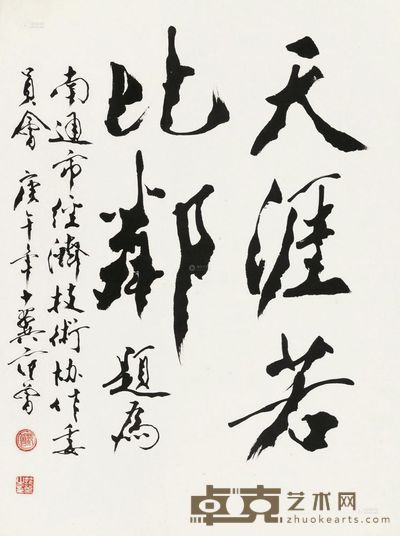 天涯若
比鄰 題為
南通市經濟技術協作委
員會 庚午年十翼范曾
卓克艺术网
zhuokearts.com